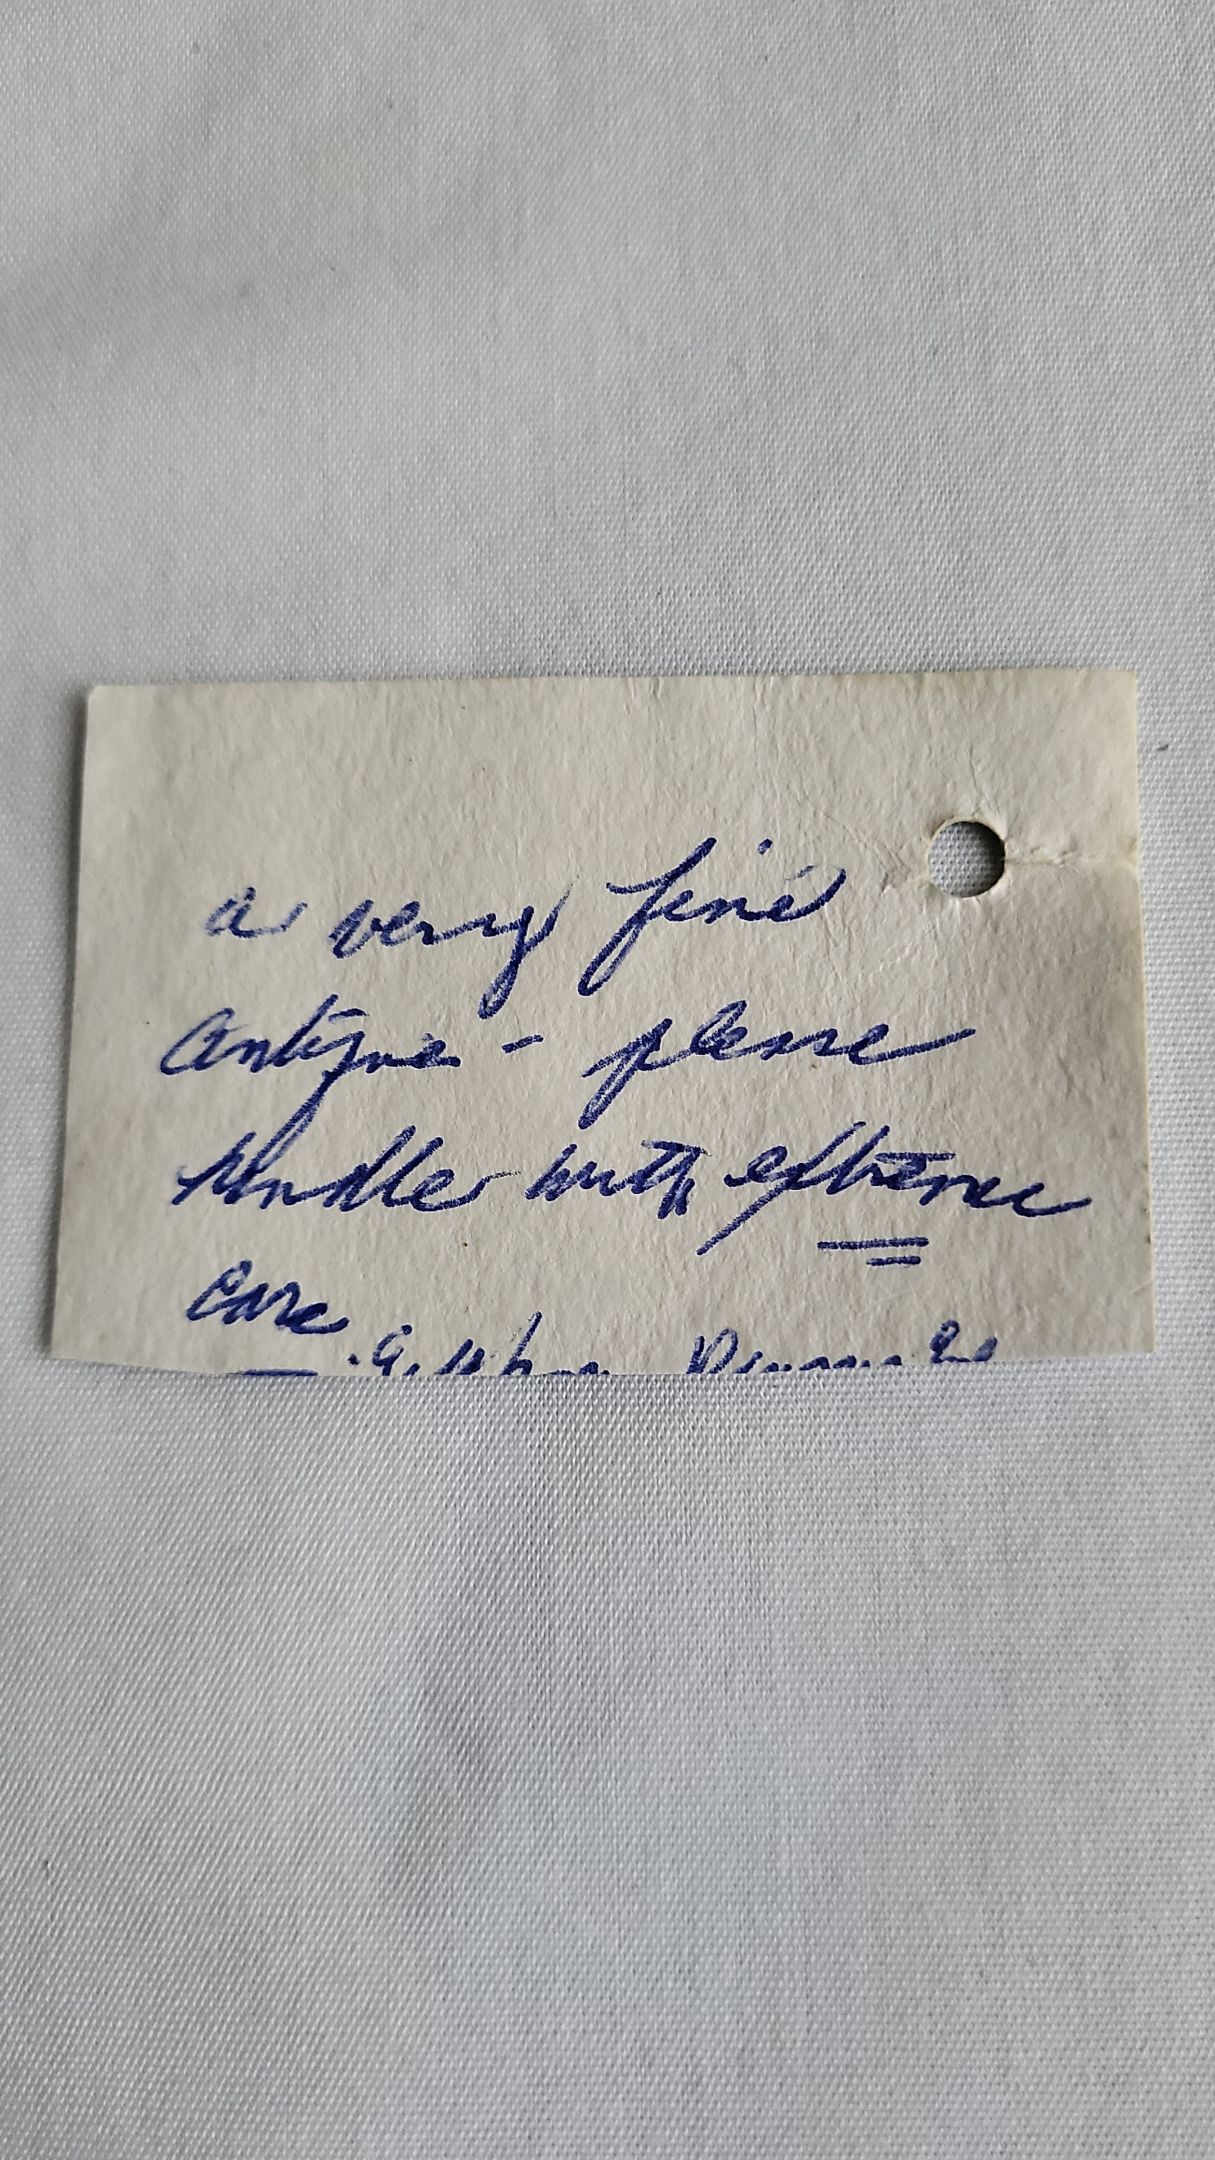 a very fine
antique - please
handle with extreme
care